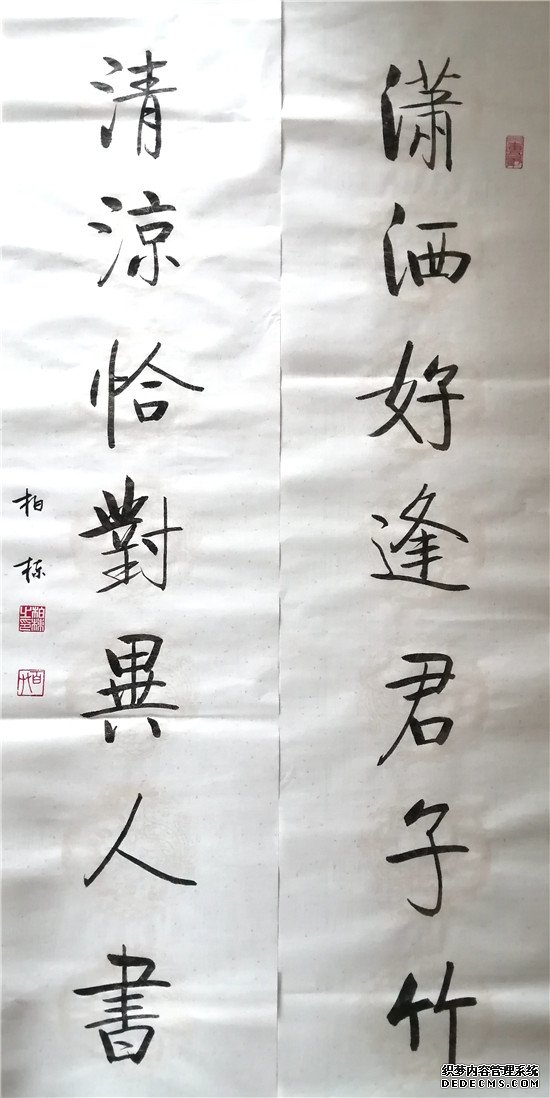 潇洒好逢君子竹
清涼恰對異人書
柏栋
柏栋之印
织梦内容管理系统
DEDECMS.COM